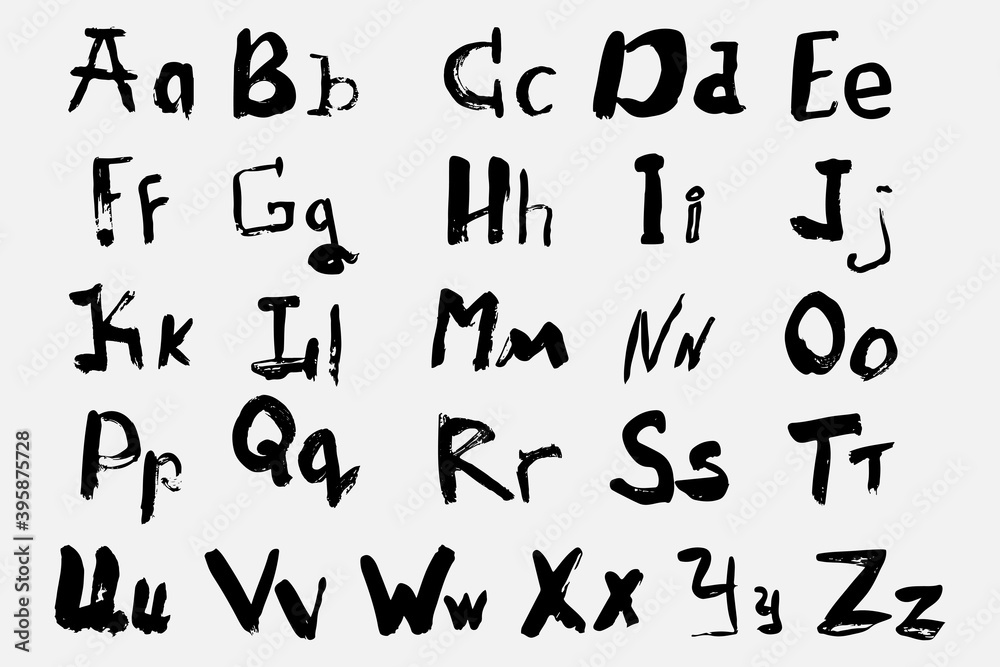 Aa Bb Cc Dd Ee
Ff Gg Hh Ii Jj
Kk Ll Mm Nn Oo
Pp Qq Rr Ss Tt
Uu Vv Ww Xx Yy Zz
Adobe Stock | #395875728